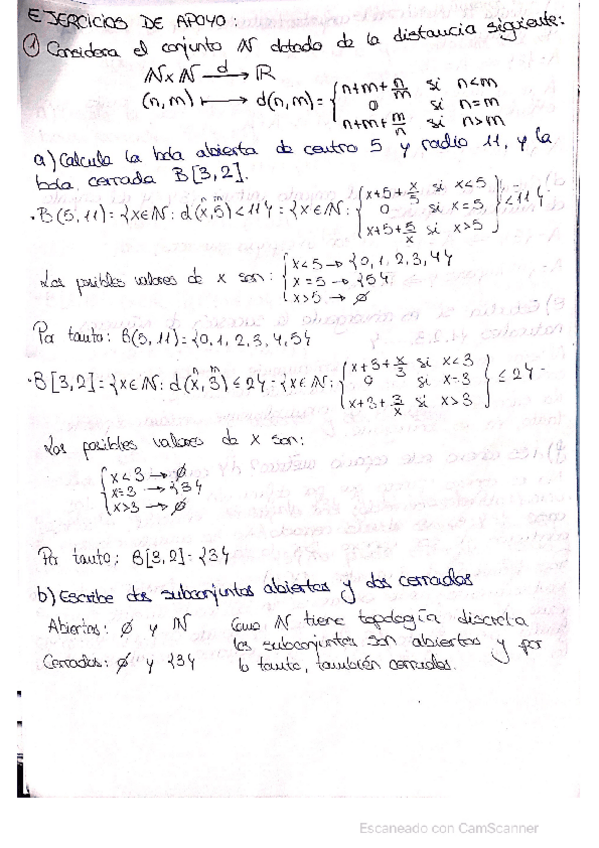 EJERCICIOS DE APOYO:
① Considera el conjunto ℕ dotado de la distancia siguiente:
ℕxℕ —d→ ℝ
(n,m) ⟼ d(n,m) = { n+m+n/m si n<m
0 si n=m
n+m+m/n si n>m
a) Calcula la bola abierta de centro 5 y radio 11, y la
bola cerrada B[3,2].
• B(5,11) = {x∈ℕ: d(x,5)<11} = {x∈ℕ: { x+5+x/5 si x<5
0 si x=5
x+5+5/x si x>5 } <11}
n m
Los posibles valores de x son: { x<5 → {0,1,2,3,4}
x=5 → {5}
x>5 → ∅
Por tanto: B(5,11) = {0,1,2,3,4,5}
• B[3,2] = {x∈ℕ: d(x,3)≤2} = {x∈ℕ: { x+3+x/3 si x<3
0 si x=3
x+3+3/x si x>3 } ≤2}
n m
Los posibles valores de x son:
{ x<3 → ∅
x=3 → {3}
x>3 → ∅
Por tanto; B[3,2] = {3}
b) Escribe dos subconjuntos abiertos y dos cerrados
Abiertos: ∅ y ℕ Como ℕ tiene topología discreta
los subconjuntos son abiertos y por
Cerrados: ∅ y {3} lo tanto, también cerrados.
Escaneado con CamScanner